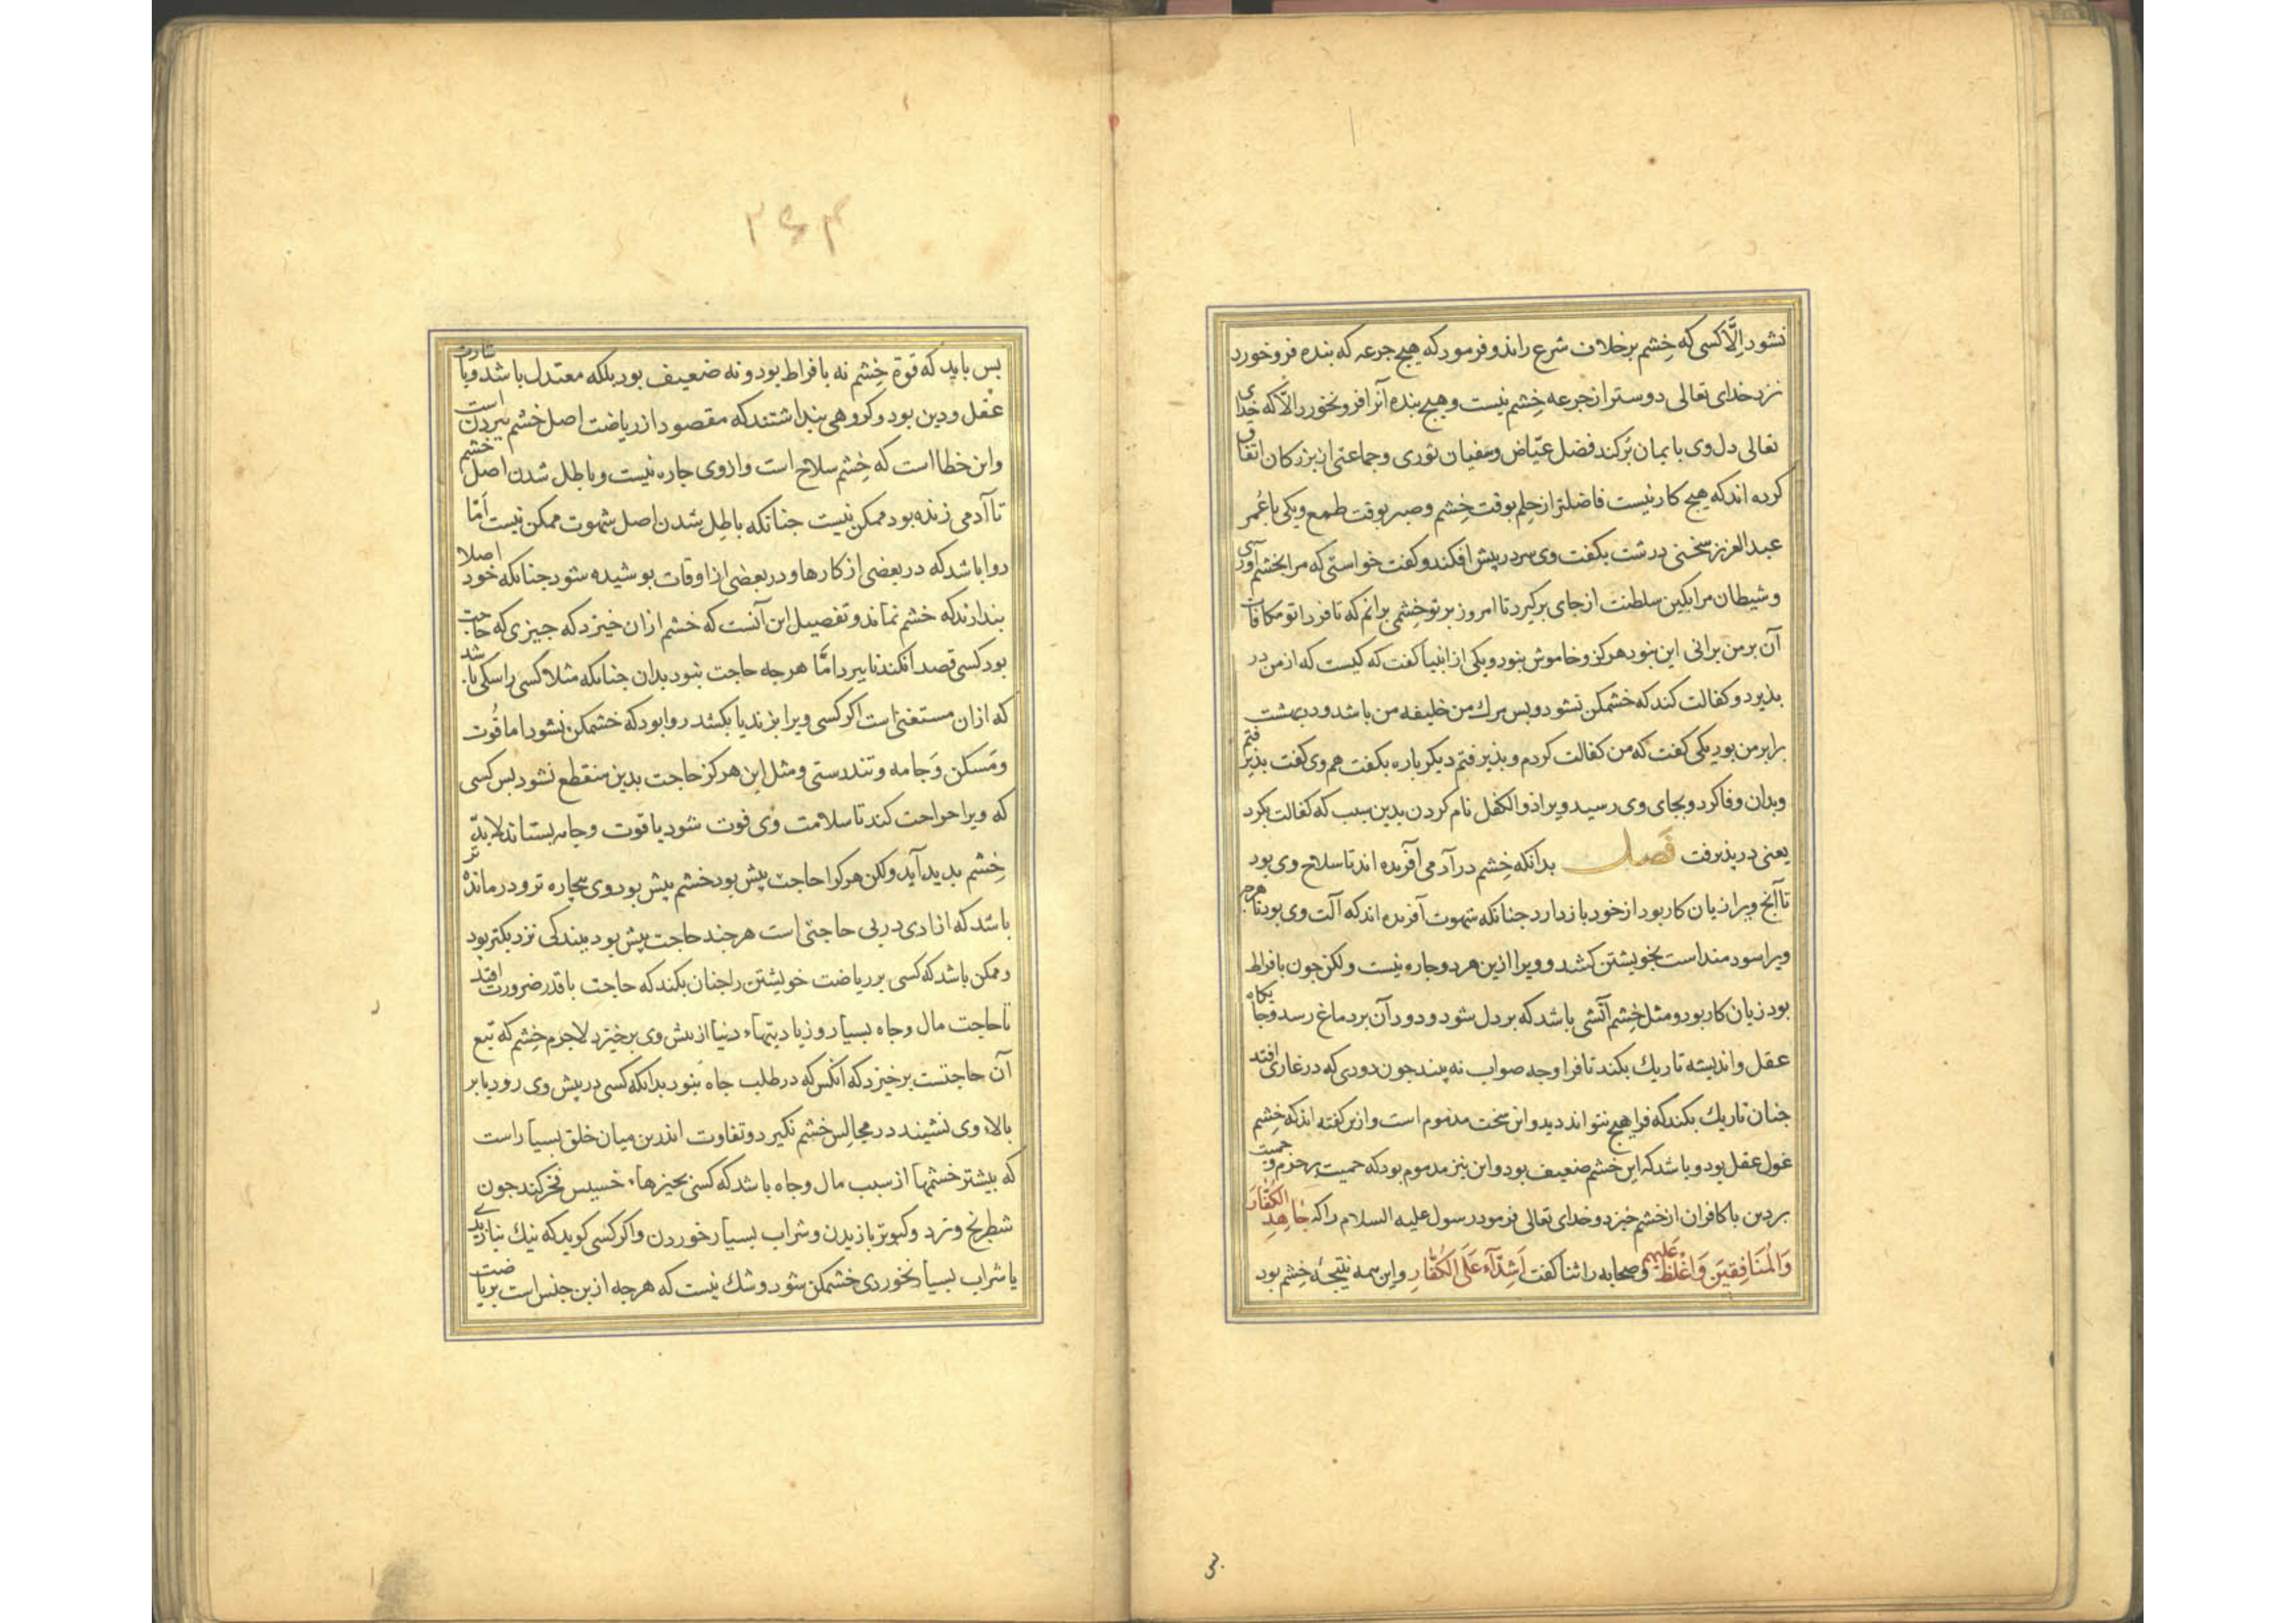 نشود اِلَّا کسی که خِشم برخلاف شرع راند و فرمود که هیچ جرعه که بنده فرو خورد
نزد خدای تعالی دوستر از جرعه خِشم نیست و هیچ بنده آنرا فرو نخورد الّا که خدای
تعالی دل وی با یمان پُر کند فضل عیّاض و سفیان ثوری و جماعتی از بزرکان اتفاق
کرده اند که هیچ کار نیست فاضلتر از حِلم بوقت خِشم و صبر بوقت طمع و یکی با عُمر
عبد العزیز سخنی درشت بکفت وی سر در پیش افکند و کفت خواستی که مرا بخشم آوری
و شیطان مرا بکبر سلطنت از جای برکیرد تا امروز بر تو خِشمی برانم که تا فردا تو مکافات
آن بر من برانی این نبود هرکز و خاموش بنود و یکی از انبیا کفت که کیست که از من در
بذیرد و کفالت کند که خشمکن نشود و بس مرك من خلیفه من باشد و در بهشت
برابر من بود یکی کفت که من کفالت کردم و بذیرفتم دیکر باره بکفت هم وی کفت بذیرفتم
و بدان وفا کرد و بجای وی رسید ویرا ذو الکفل نام کردن بدین سبب که کفالت بکرد
یعنی در بذیرفت فَصل بدانکه خِشم در آدمی آفریده اند تا سلاح وی بود
تا آنج ویرا زیان کار بود از خود باز دارد جنانکه شهوت آفریده اند که آلت وی بود تا هرجه
ویرا سودمند است بخویشتن کشد و ویرا ازین هر دو جاره نیست ولکن جون با فراط
بود زیان کار بود و مثل خِشم آتشی باشد که بر دل شود و دود آن بر دماغ رسد و جایکاه
عقل و اندیشه تاریك بکند تا فرا وجه صواب نه بیند جون دودی که در غاری افتد
جنان تاریك بکند که فرا هیچ نتواند دید و این سخت مذموم است و ازین کفته اند که خِشم
غول عقل بود و باشد که این خشم ضعیف بود و این نیز مذموم بود که حمیت بر حرم و حمیت
بر دین با کافران از خشم خیزد و خدای تعالی فرمود رسول علیه السلام را که جَاهِدِ الکُفَّارَ
وَالْمُنَافِقِیَن وَاغْلُظْ عَلَیهِم و صحابه را ثنا کفت اَشِدَّآءُ عَلَی الکُفَّارِ و این همه نتیجهٔ خِشم بود
بس باید که قوة خِشم نه با فراط بود و نه ضعیف بود بلکه معتدل باشد و با شارت
عقل و دین بود و کروهی بنداشتند که مقصود از ریاضت اصل خشم ببردن است
و این خطا است که خِشم سلاح است و از وی جاره نیست و باطل شدن اصل خشم
تا آدمی زنده بود ممکن نیست جنانکه باطِل شدن اصل شهوت ممکن نیست اَمّا
روا باشد که در بعضی از کارها و در بعضی از اوقات بوشیده شود جنانکه خود اصلا
بندارند که خشم نماند و تفصیل این آنست که خشم از ان خیزد که جیزی که حاجت
بود کسی قصد آن کند تا ببرد امّا هرجه حاجت نبود بدان جنانکه مثلا کسی را سکی باشد
که ازان مستغنی است اکر کسی ویرا بزند یا بکشد روا بود که خشمکن نشود اما قُوت
و مَسکن وَجامه و تندرستی و مثل این هرکز حاجت بدین منقطع نشود بس کسی
که ویرا جراحت کند تا سلامت وی فوت شود یا قوت و جامه بستاند لا بدّ
خِشم بدید آید ولکن هرکرا حاجت بیش بود خشم بیش بود وی بیجاره تر و درمانده تر
باشد که ازادی در بی حاجتی است هرجند حاجت بیش بود ببندکی نزدیکتر بود
و ممکن باشد که کسی بر ریاضت خویشتن را جنان بکند که حاجت با قدر ضرورت افتد
تا حاجت مال و جاه بسیار و زیادیتهاء دنیا از بیش وی برخیزد لاجرم خِشم که تبع
آن حاجتست برخیزد که انکس که در طلب جاه نبود بدانکه کسی در بیش وی رود یا بر
بالاء وی نشیند در مجالس خشم نکیرد و تفاوت اندرین میان خلق بسیار است
که بیشتر خشمها از سبب مال و جاه باشد که کسی بجیزهاء خسیس فخر کند جون
شطرنج و نرد و کبوتر بازیدن و شراب بسیار خوردن و اکر کسی کوید که نیك نبازیدی
یا شراب بسیار نخوردی خشمکن شود و شك نیست که هرجه ازین جنس است بریاضت